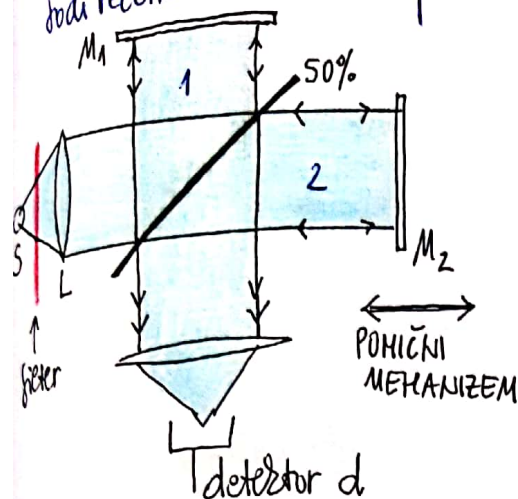 M1
1
50%
2
S
L
M2
filter
POMIČNI
MEHANIZEM
detektor d